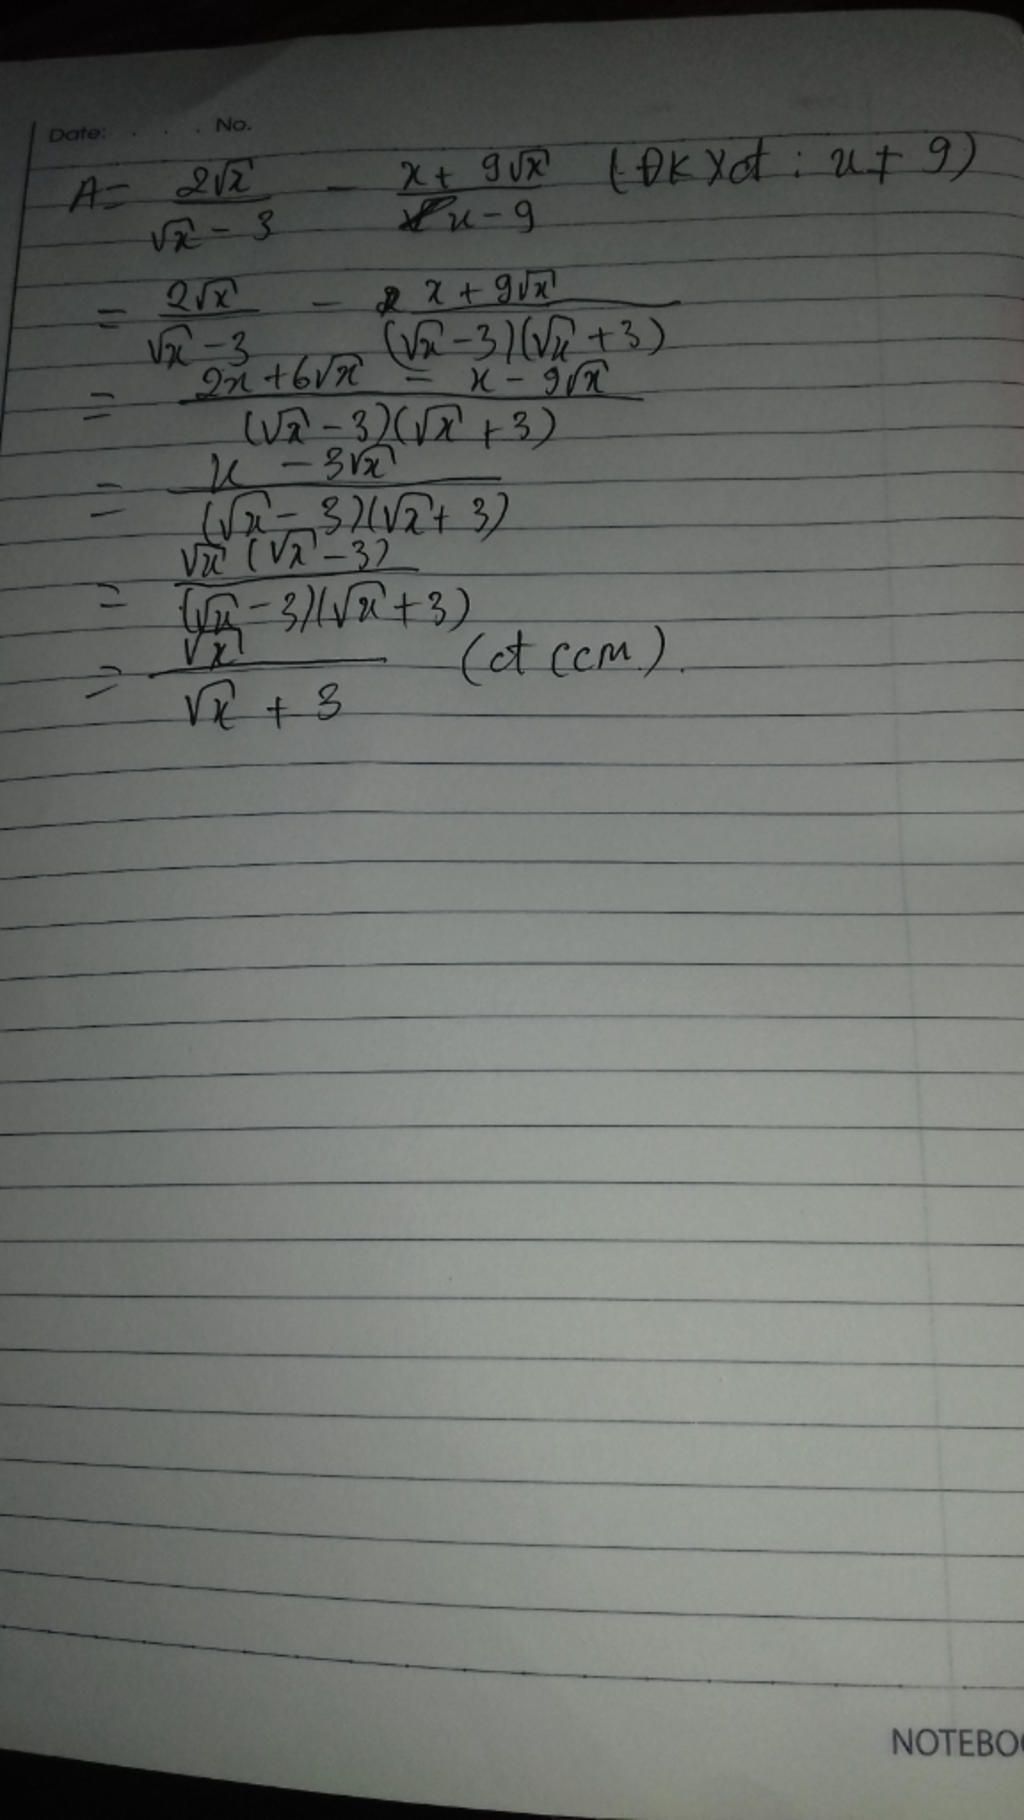 Date: . . . . No.
A = 2√x / √x - 3 - x + 9√x / x - 9 (ĐKXđ : x ≠ 9)
= 2√x / √x - 3 - x + 9√x / (√x - 3)(√x + 3)
= 2x + 6√x - x - 9√x / (√x - 3)(√x + 3)
= x - 3√x / (√x - 3)(√x + 3)
= √x (√x - 3) / (√x - 3)(√x + 3)
= √x / √x + 3 (đt ccm).
NOTEBO